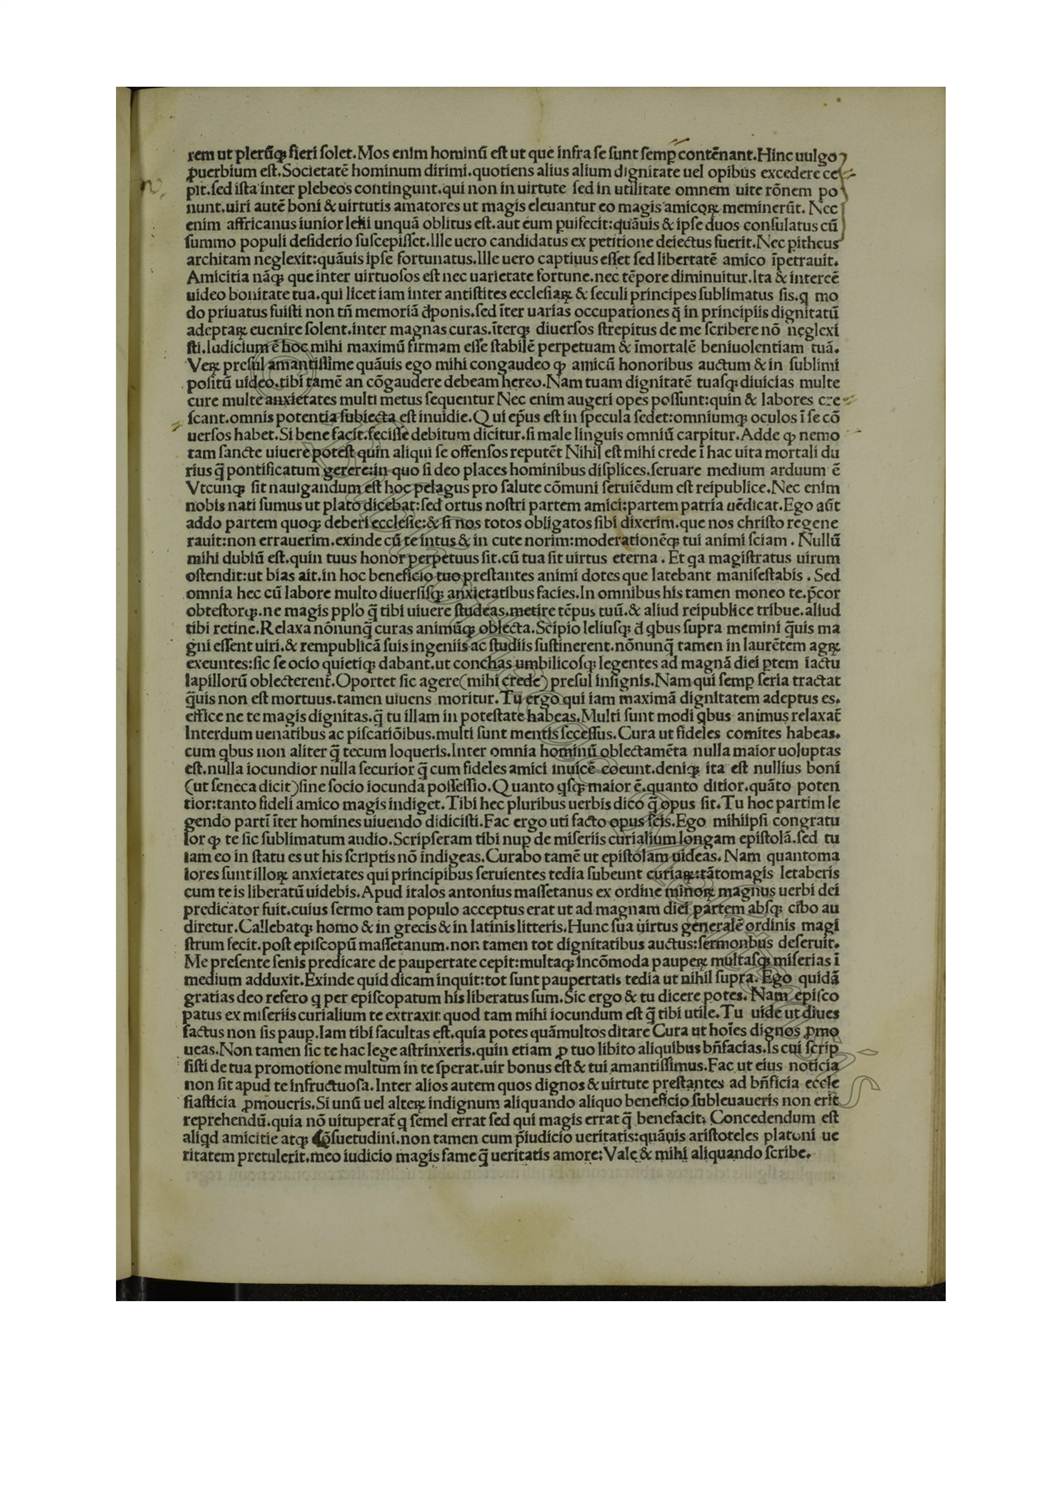 rem ut plerūqꝫ fieri solet. Mos enim hominū est ut que infra se sunt semꝑ contēnant. Hinc uulgo
ꝓuerbium est. Societatē hominum dirimi. quotiens alius alium dignitate uel opibus excedere ce
pit. sed ista inter plebeos contingunt. qui non in uirtute sed in utilitate omnem uite rōnem po
nunt. uiri autē boni & uirtutis amatores ut magis eleuantur eo magis amicoꝝ meminerūt. Nec
enim affricanus iunior lelii unquā oblitus est. aut eum puifecit: quāuis & ipse duos consulatus cū
summo populi desiderio suscepisset. Ille uero candidatus ex petitione deiectus fuerit. Nec pitheus
architam neglexit: quāuis ipse fortunatus. Ille uero captiuus esset sed libertatē amico īpetrauit.
Amicitia nāqꝫ que inter uirtuosos est nec uarietate fortune. nec tēpore diminuitur. Ita & intercē
uideo bonitate tua. qui licet iam inter antistites ecclesiaꝝ & seculi principes sublimatus sis. q̄ mo
do priuatus fuisti non tn̄ memoriā d̄ponis. sed īter uarias occupationes q̄ in principiis dignitatū
adeptaꝝ euenire solent. inter magnas curas. īterqꝫ diuersos strepitus de me scribere nō neglexi
sti. Iudicium ē hoc mihi maximū firmam esse stabilē perpetuam & īmortalē beniuolentiam tuā.
Veꝝ presul amantissime quāuis ego mihi congaudeo ꝙ amicū honoribus auctum & in sublimi
positū uideo. tibi tamē an cōgaudere debeam hereo. Nam tuam dignitatē tuasqꝫ diuicias multe
cure multe anxietates multi metus sequentur Nec enim augeri opes possunt: quin & labores cre
scant. omnis potentia subiecta est inuidie. Qui ep̄us est in specula sedet: omniumqꝫ oculos ī se cō
uersos habet. Si bene facit. fecisse debitum dicitur. si male linguis omniū carpitur. Adde ꝙ nemo
tam sancte uiuere potest quin aliqui se offensos reputēt Nihil est mihi crede ī hac uita mortali du
rius q̄ pontificatum gerere: in quo si deo places hominibus displices. seruare medium arduum ē
Vtcunqꝫ sit nauigandum est hoc pelagus pro salute cōmuni seruiēdum est reipublice. Nec enim
nobis nati sumus ut plato dicebat: sed ortus nostri partem amici: partem patria uēdicat. Ego aūt
addo partem quoqꝫ deberi ecclesie: & si nos totos obligatos sibi dixerim. que nos christo regene
rauit: non errauerim. exinde cū te intus & in cute norim: moderationēqꝫ tui animi sciam. Nullū
mihi dubiū est. quin tuus honor perpetuus sit. cū tua sit uirtus eterna. Et qa magistratus uirum
ostendit: ut bias ait. in hoc beneficio tuo prestantes animi dotes que latebant manifestabis. Sed
omnia hec cū labore multo diuersisqꝫ anxietatibus facies. In omnibus his tamen moneo te. p̄cor
obtestorqꝫ. ne magis pplo q̄ tibi uiuere studeas. metire tēpus tuū. & aliud reipublice tribue. aliud
tibi retine. Relaxa nōnunq̄ curas animūqꝫ oblecta. Scipio leliusqꝫ d̄ qbus supra memini q̄uis ma
gni essent uiri. & rempublicā suis ingeniis ac studiis sustinerent. nōnunq̄ tamen in laurētem agꝝ
exeuntes: sic se ocio quietiqꝫ dabant. ut conchas umbilicosqꝫ legentes ad magnā diei ꝑtem iactu
lapillorū oblecterent̄. Oportet sic agere (mihi crede) presul insignis. Nam qui semꝑ seria tractat
q̄uis non est mortuus. tamen uiuens moritur. Tu ergo qui iam maximā dignitatem adeptus es.
effice ne te magis dignitas. q̄ tu illam in potestate habeas. Multi sunt modi qbus animus relaxat̄
Interdum uenatibus ac piscatiōibus. multi sunt mentis secessus. Cura ut fideles comites habeas.
cum qbus non aliter q̄ tecum loqueris. Inter omnia hominū oblectamēta nulla maior uoluptas
est. nulla iocundior nulla securior q̄ cum fideles amici inuicē coeunt. deniqꝫ ita est nullius boni
(ut seneca dicit) sine socio iocunda possessio. Quanto qsqꝫ maior ē. quanto ditior. quāto poten
tior: tanto fideli amico magis indiget. Tibi hec pluribus uerbis dico q̄ opus sit. Tu hoc partim le
gendo partī īter homines uiuendo didicisti. Fac ergo uti facto opus scis. Ego mihiipsi congratu
lor ꝙ te sic sublimatum audio. Scripseram tibi nuꝑ de miseriis curialium longam epistolā. sed tu
iam eo in statu es ut his scriptis nō indigeas. Curabo tamē ut epistolam uideas. Nam quantoma
iores sunt illoꝝ anxietates qui principibus seruientes tedia subeunt curiaꝝ: tātomagis letaberis
cum te is liberatū uidebis. Apud italos antonius massetanus ex ordine minoꝝ magnus uerbi dei
predicator fuit. cuius sermo tam populo acceptus erat ut ad magnam diei partem absqꝫ cibo au
diretur. Callebatqꝫ homo & in grecis & in latinis litteris. Hunc sua uirtus generalē ordinis magi
strum fecit. post episcopū massetanum. non tamen tot dignitatibus auctus: sermonbus deseruit.
Me presente senis predicare de paupertate cepit: multaqꝫ incōmoda pauperꝝ multasqꝫ miserias ī
medium adduxit. Exinde quid dicam inquit: tot sunt paupertatis tedia ut nihil supra. Ego quidā
gratias deo refero q per episcopatum his liberatus sum. Sic ergo & tu dicere potes. Nam episco
patus ex miseriis curialium te extraxit quod tam mihi iocundum est q̄ tibi utile. Tu uide ut diues
factus non sis pauꝑ. Iam tibi facultas est. quia potes quāmultos ditare Cura ut hoīes dignos ꝓmo
ueas. Non tamen sic te hac lege astrinxeris. quin etiam ꝓ tuo libito aliquibus bn̄facias. Is cui scrip
sisti de tua promotione multum in te sperat. uir bonus est & tui amantissimus. Fac ut eius noticia
non sit apud te infructuosa. Inter alios autem quos dignos & uirtute prestantes ad bn̄ficia eccle
siasticia ꝓmoueris. Si unū uel alteꝝ indignum aliquando aliquo beneficio subleuaueris non erit
reprehendū. quia nō uituperat̄ q semel errat sed qui magis errat q̄ benefacit; Concedendum est
aliqd amicitie atqꝫ cōsuetudini. non tamen cum p̄iudicio ueritatis: quāuis aristoteles platoni ue
ritatem pretulerit. meo iudicio magis fame q̄ ueritatis amore: Vale & mihi aliquando scribe.